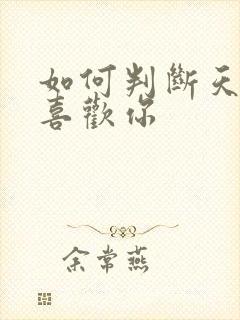 如何判斷天
喜歡你
余常燕